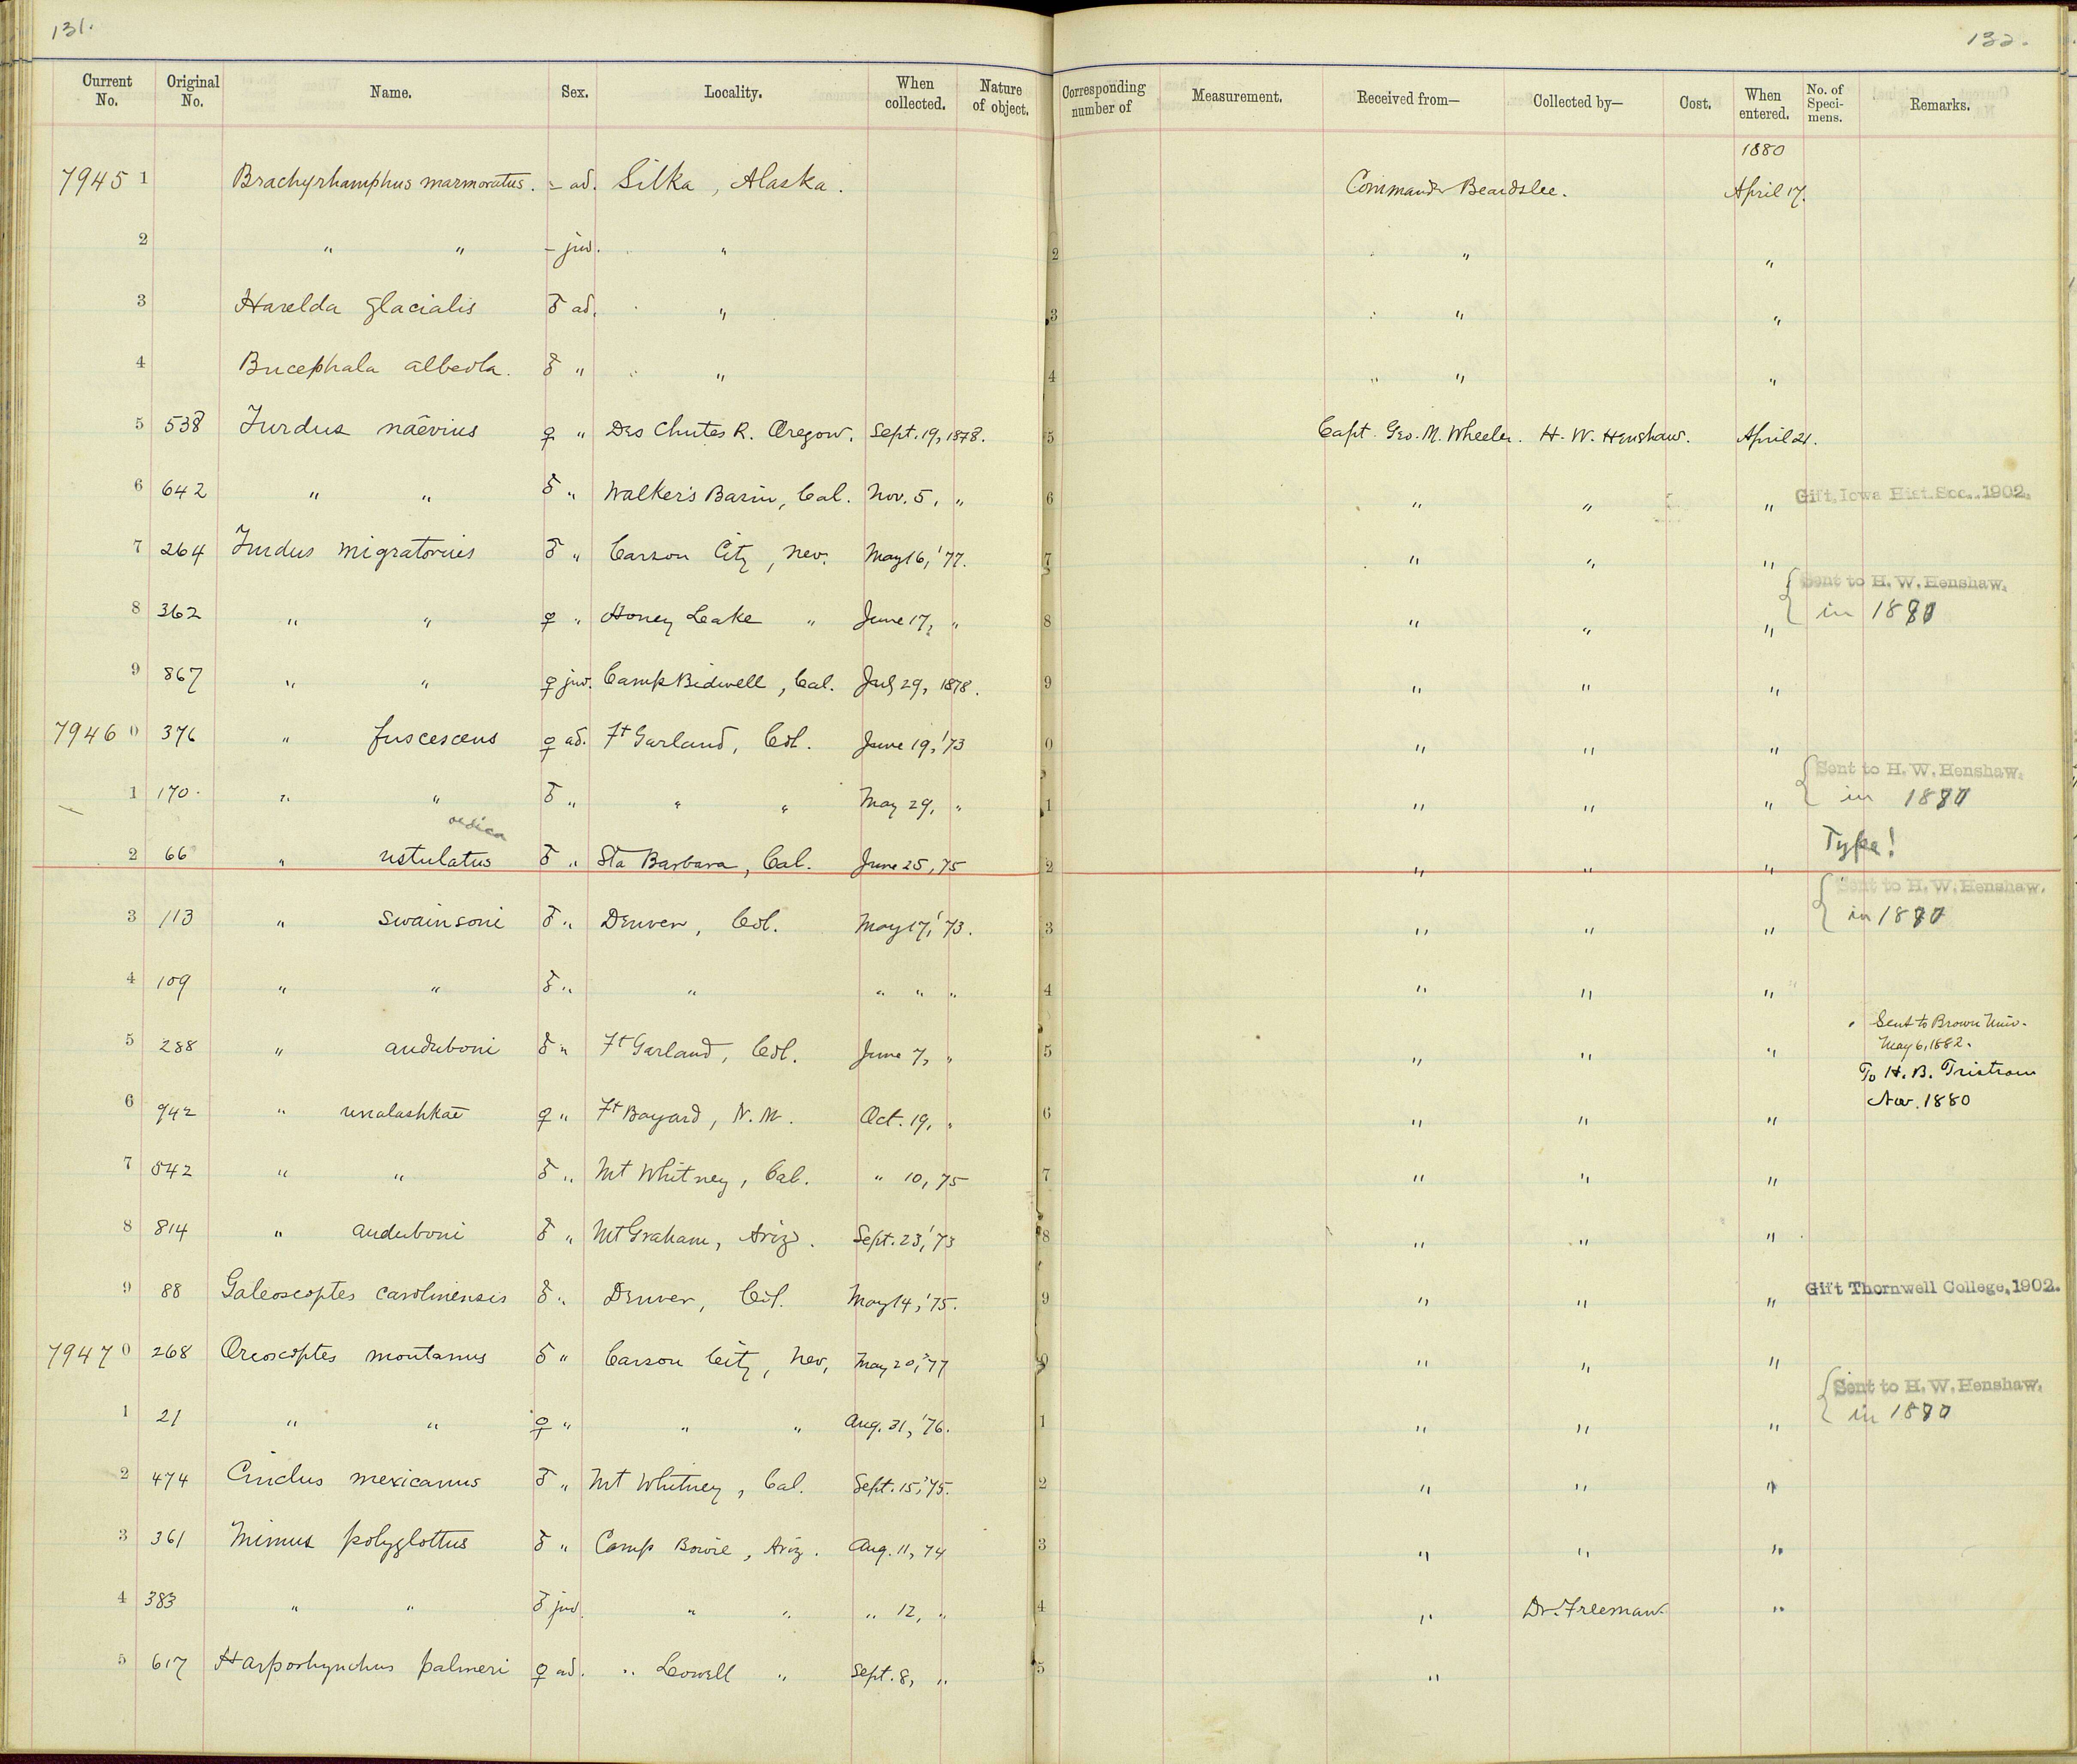 131.
132.
Current No. Original No. Name. Sex. Locality. When collected. Nature of object. Corresponding number of Measurement. Received from— Collected by— Cost. When entered. No. of Speci-mens. Remarks.
1880
79451 Brachyrhamphus marmoratus. - ad. Sitka, Alaska. Commandr Beardslee. April 17.
2 " " - juv. " 2 " "
3 Harelda glacialis ♂ ad. " 3 " "
4 Bucephala albeola. ♂ " " 4 " " "
5 538 Turdus naevius ♀ " Des Chutes R. Oregon. Sept. 19, 1878. 5 Capt. Geo. M. Wheeler. H. W. Henshaw. April 21.
6 642 " " ♂ " Walker's Basin, Cal. Nov. 5, " 6 " " " Gift, Iowa Hist. Soc., 1902.
7 264 Turdus migratorius ♂ " Carson City, Nev. May 16, '77. 7 " " "
Sent to H. W. Henshaw.
8 362 " " ♀ " Honey Lake " June 17, " 8 " " " in 18
9 867 " " ♀ juv. Camp Bidwell, Cal. July 29, 1878. 9 " " "
79460 376 " fuscescens ♀ ad. Ft Garland, Col. June 19, '73 0 " " "
Sent to H. W. Henshaw.
1 170 " " ♂ " " " May 29, " 1 " " " in 18
oedica
Type!
2 66 " ustulatus ♂ " Sta Barbara, Cal. June 25, 75 2 " " "
Sent to H. W. Henshaw.
3 113 " swainsoni ♂ " Denver, Col. May 17, '73. 3 " " " in 18
4 109 " " ♂ " " " " " 4 " " "
Sent to Brown Univ.
May 6, 1882.
5 288 " auduboni ♂ " Ft Garland, Col. June 7, " 5 " " "
To H. B. Tristram
Nov. 1880
6 942 " unalashkae ♀ " Ft Bayard, N. M. Oct. 19, " 6 " " "
7 542 " " ♂ " Mt Whitney, Cal. " 10, 75 7 " " "
8 814 " auduboni ♂ " Mt Graham, Ariz. Sept. 23, '73 8 " " "
9 88 Galeoscoptes carolinensis ♂ " Denver, Col. May 14, '75. 9 " " " Gift Thornwell College, 1902.
79470 268 Oreoscoptes montanus ♂ " Carson City, Nev, May 20, '77 0 " " "
Sent to H. W. Henshaw.
1 21 " " ♀ " " " Aug. 31, '76. 1 " " " in 18
2 474 Cinclus mexicanus ♂ " Mt Whitney, Cal. Sept. 15, '75. 2 " " "
3 361 Mimus polyglottus ♂ " Camp Bowie, Ariz. Aug. 11, 74 3 " " "
4 383 " " ♂ juv. " " " 12, " 4 " Dr. Freeman. "
5 617 Harporhynchus palmeri ♀ ad. " Lowell " Sept. 8, " 5 "